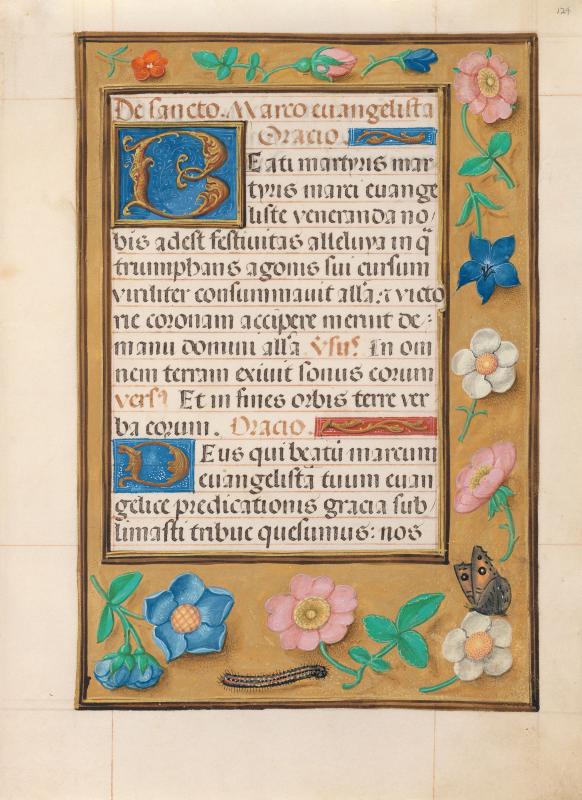 124
De sancto. Marco euangelista
Oracio.
Beati martyris mar
tyris marci euange
liste veneranda no/
bis adest festiuitas alleluya in q̄
triumphans agonis sui cursum
viriliter consummauit all'a: ⁊ victo
rie coronam accipere meruit de:
manu domini all'a Vsus. In om
nem terram exiuit sonus eorum
versꝰ Et in fines orbis terre ver
ba eorum. Oracio.
Deus qui beatū marcum
euangelistā tuum euan
gelice predicationis gracia sub/
limasti tribue quesumus: nos